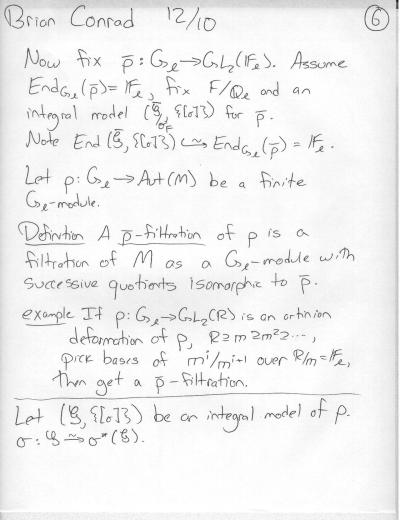 Brian Conrad 12/10 ⑥
Now fix ρ̄: G_ℓ → GL₂(𝔽_ℓ). Assume
End_{G_ℓ}(ρ̄) = 𝔽_ℓ, fix F/ℚ_ℓ and an
integral model (𝒢̄/𝒪_F, {[σ]}) for ρ̄.
Note End(𝒢̄, {[σ]}) ↪ End_{G_ℓ}(ρ̄) = 𝔽_ℓ.
Let ρ: G_ℓ → Aut(M) be a finite
G_ℓ-module.
Definition A ρ̄-filtration of ρ is a
filtration of M as a G_ℓ-module with
successive quotients isomorphic to ρ̄.
example If ρ: G_ℓ → GL₂(R) is an artinian
deformation of ρ, R ⊇ m ⊇ m² ⊇ ...,
pick bases of mⁱ/mⁱ⁺¹ over R/m = 𝔽_ℓ,
then get a ρ̄-filtration.
Let (𝒢, {[σ]}) be an integral model of ρ.
σ: 𝒢 ⥲ σ*(𝒢).